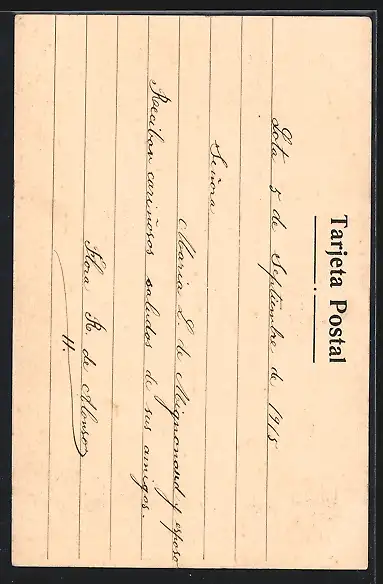 Tarjeta Postal
Lota 5 de Septiembre de 1915
Señora
Maria L. de Mignonand y esposo
Reciban cariñosos saludos de sus amigos.
Flora R. de Alonso
H.